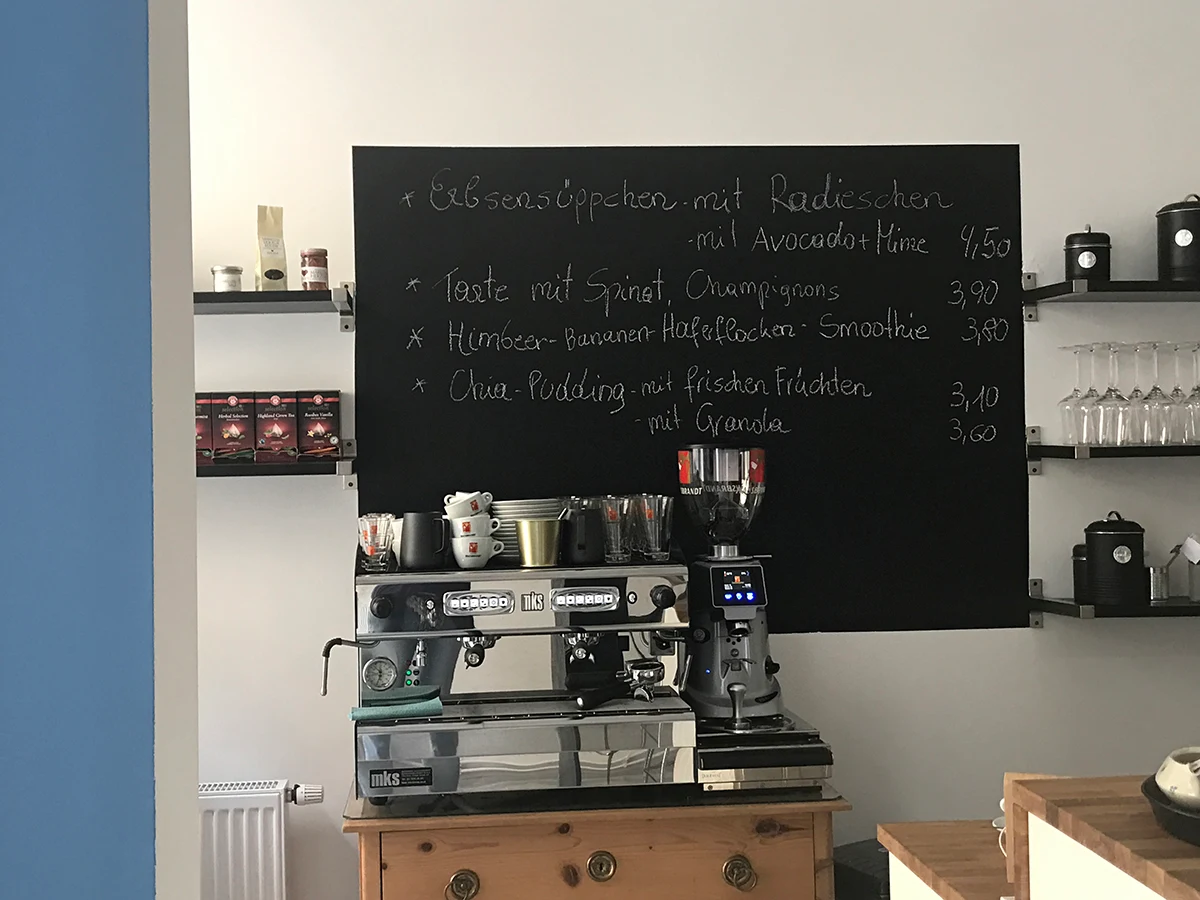 * Erbsensüppchen - mit Radieschen
- mit Avocado + Minze 4,50
* Tarte mit Spinat, Champignons 3,90
* Himbeer-Bananen-Haferflocken-Smoothie 3,80
* Chia-Pudding - mit frischen Früchten 3,10
- mit Granola 3,60
Herbal Selection
Highland Green Tea
Rooibos Vanilla
BRANDT
mks
mks